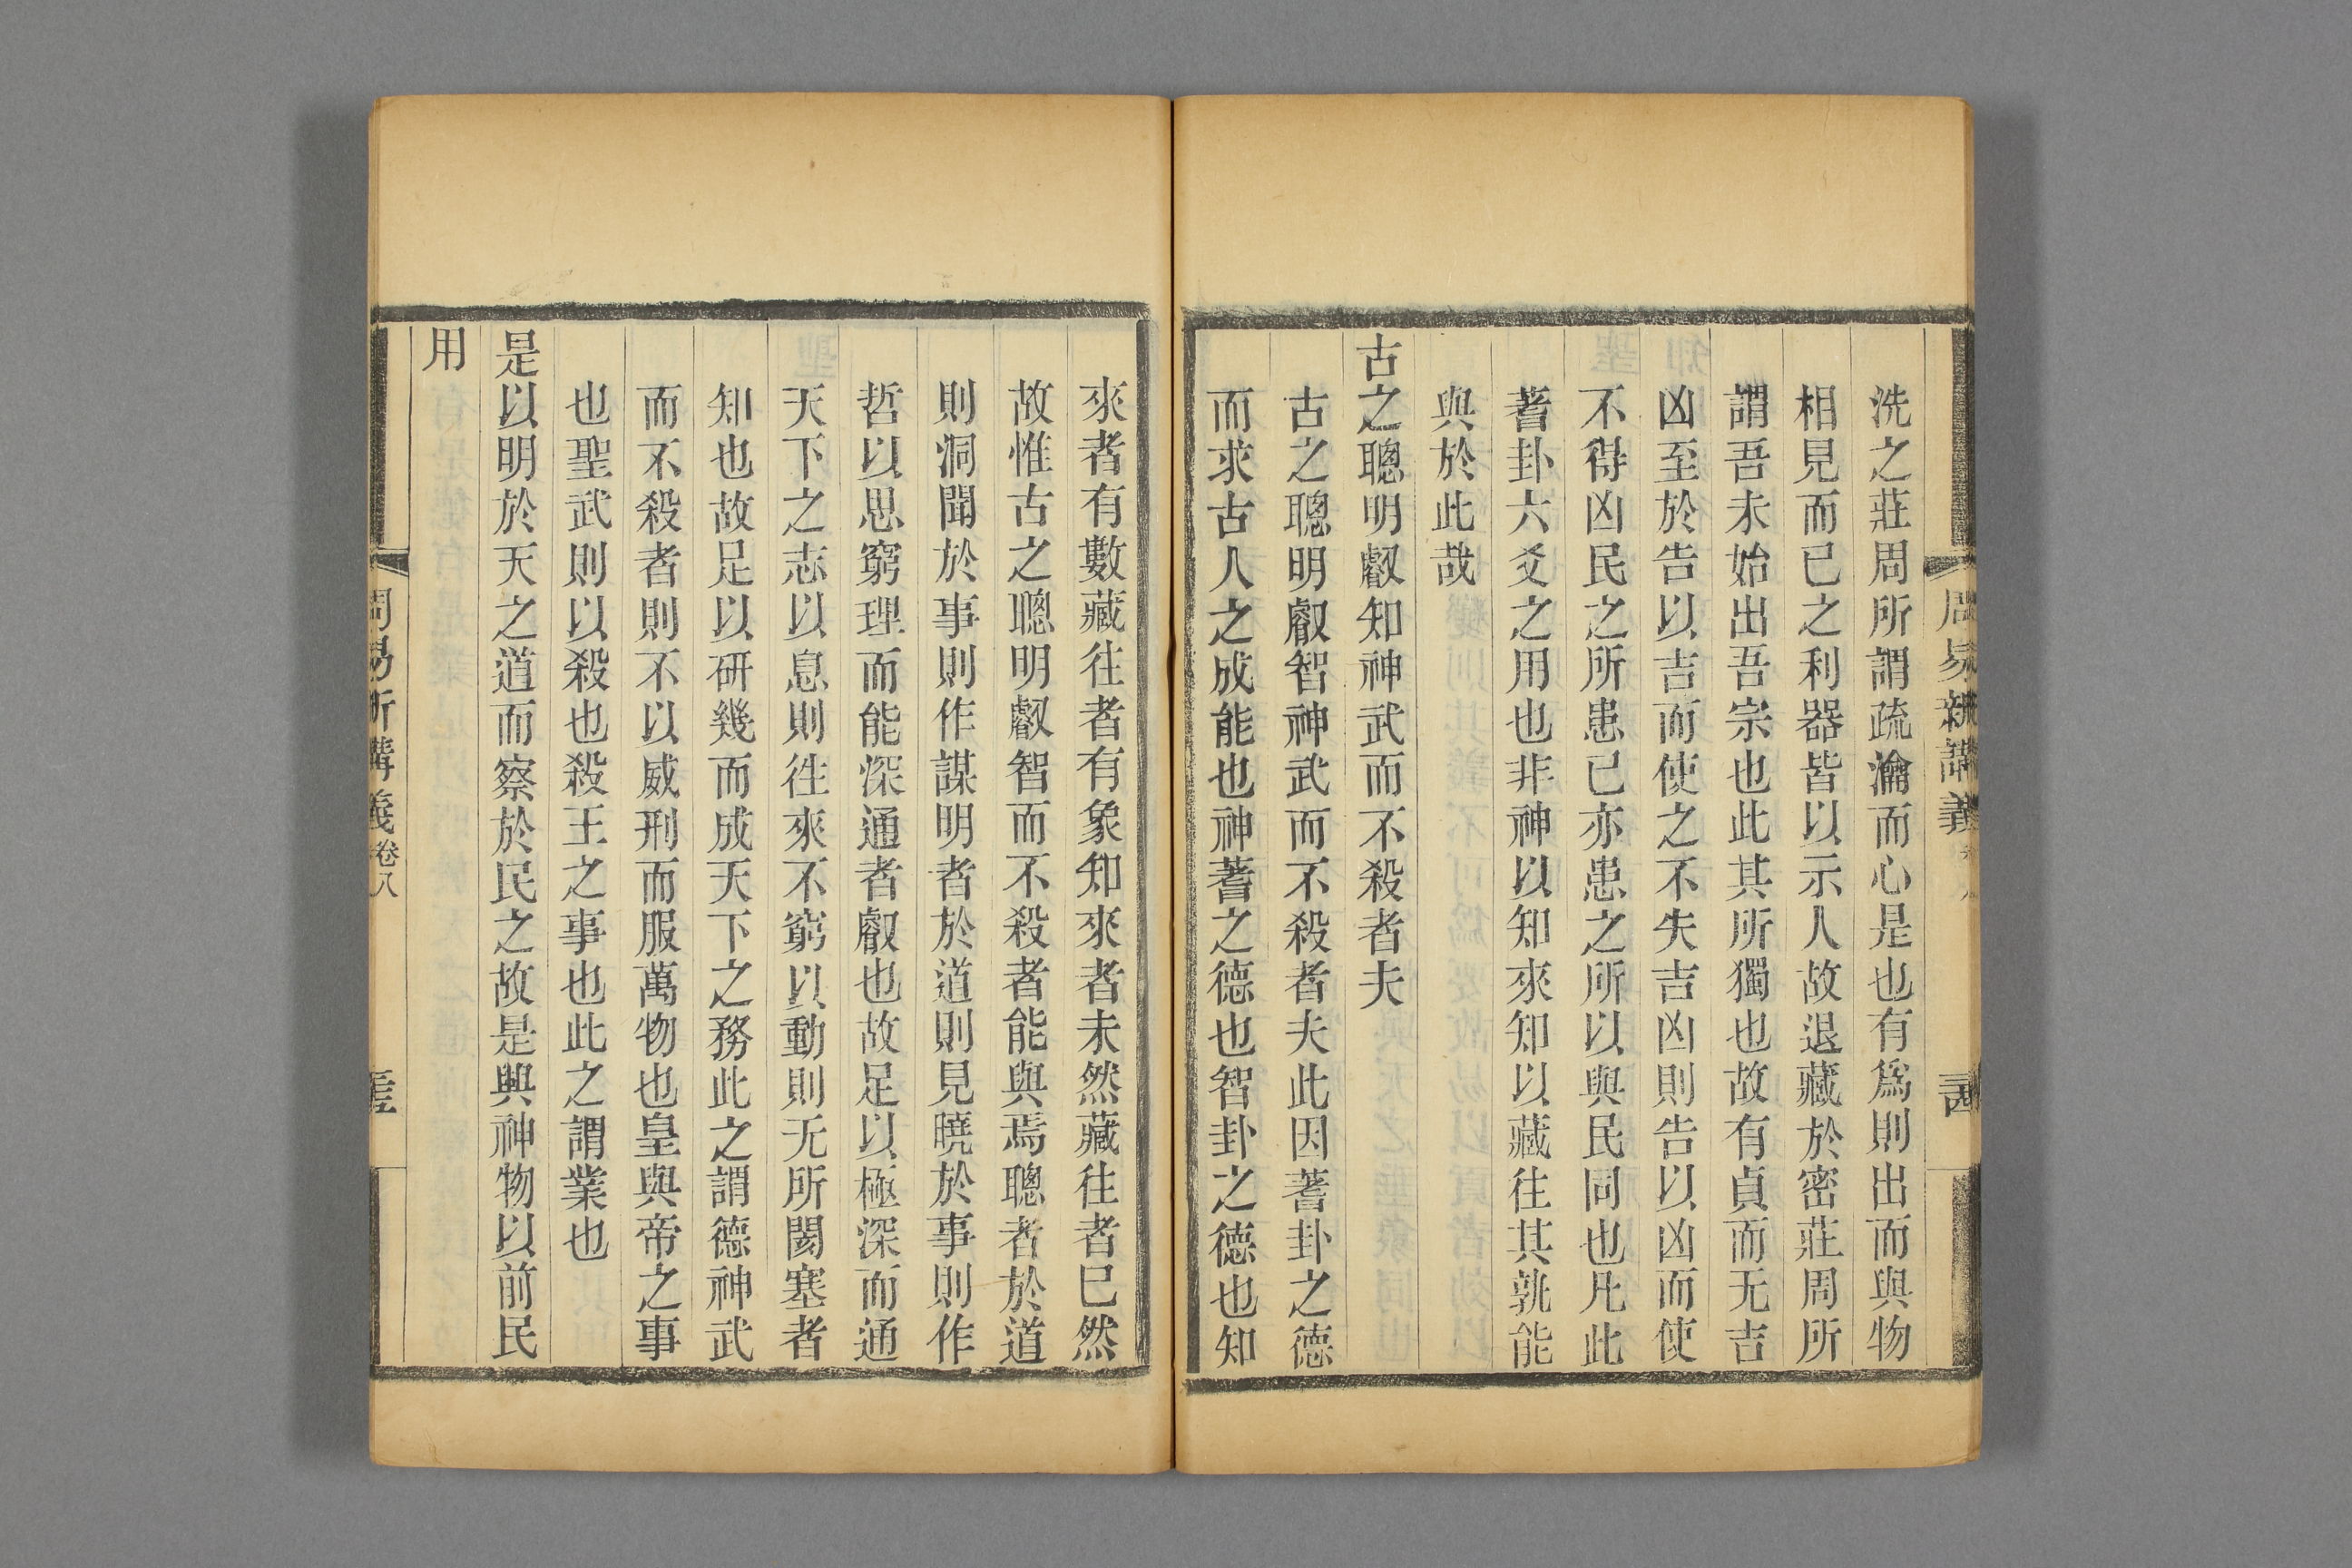 周易新講義
洗之莊周所謂疏瀹而心是也有爲則出而與物
相見而已之利器皆以示人故退藏於密莊周所
謂吾未始出吾宗也此其所獨也故有貞而无吉
凶至於告以吉而使之不失吉凶則告以凶而使
不得凶民之所患已亦患之所以與民同也凡此
蓍卦六爻之用也非神以知來知以藏往其孰能
與於此哉
古之聰明叡知神武而不殺者夫
古之聰明叡智神武而不殺者夫此因蓍卦之德
而求古人之成能也神蓍之德也智卦之德也知
來者有數藏往者有象知來者未然藏往者已然
故惟古之聰明叡智而不殺者能與焉聰者於道
則洞聞於事則作謀明者於道則見曉於事則作
哲以思窮理而能深通者叡也故足以極深而通
天下之志以息則徃來不窮以動則无所閡塞者
知也故足以研幾而成天下之務此之謂德神武
而不殺者則不以威刑而服萬物也皇與帝之事
也聖武則以殺也殺王之事也此之謂業也
是以明於天之道而察於民之故是興神物以前民
用
周易新講義 卷八